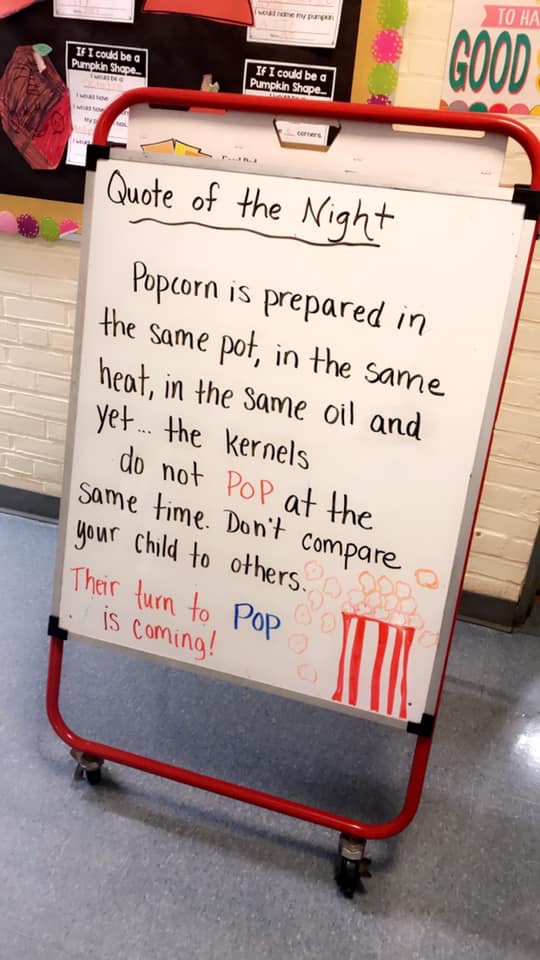 would name my pumpkin
TO HA
GOOD
If I could be a
Pumpkin Shape...
I would be a
I would have
I would have
If I could be a
Pumpkin Shape...
corners
Quote of the Night
Popcorn is prepared in
the same pot, in the same
heat, in the same oil and
yet... the kernels
do not POP at the
same time. Don't compare
your child to others.
Their turn to POP
is coming!